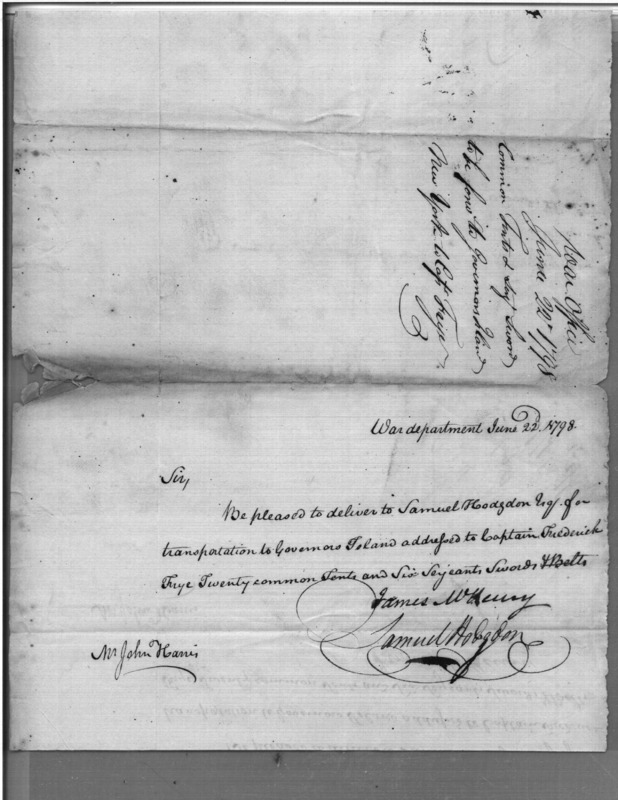 War Office
June 22d 1798
Common Tents & Serjt Swords
to be sent to Governors Island
New York to Capt Frye
War department June 22d. 1798.
Sir,
Be pleased to deliver to Samuel Hodgdon Esqr. for
transportation to Governors Island addressed to Captain Frederick
Frye Twenty common Tents and Six Serjeants Swords & Belts
James McHenry
Samuel Hodgdon
Mr John Harris